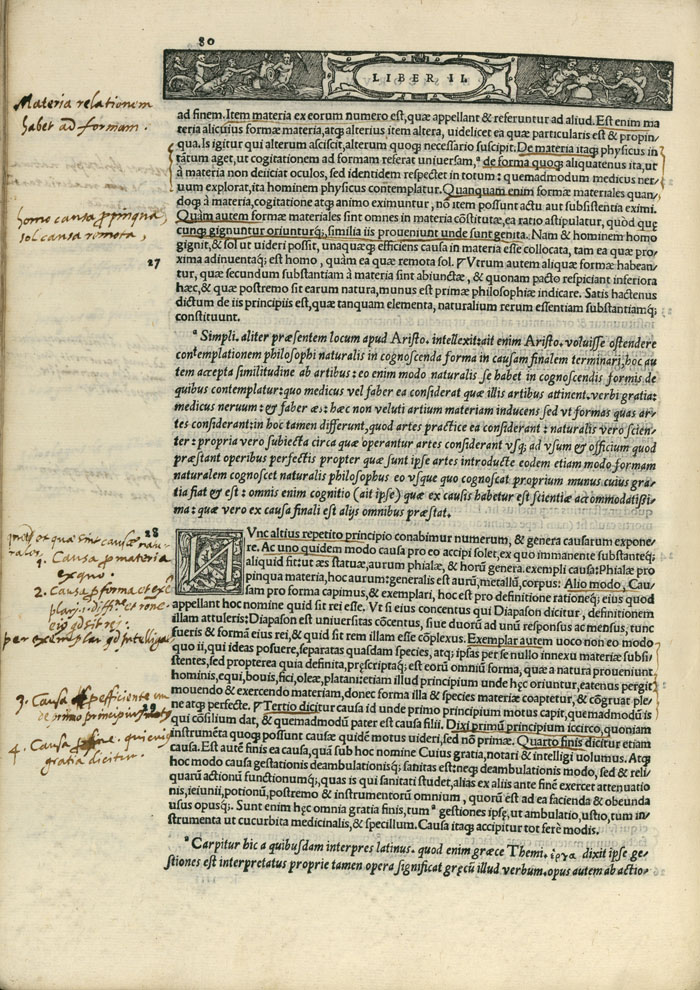 80
LIBER II.
Materia relationem
habet ad formam.
ad finem. Item materia ex eorum numero est, quæ appellant & referuntur ad aliud. Est enim ma
teria alicuius formæ materia, atq; alterius item altera, uidelicet ea quæ particularis est & propin-
qua. Is igitur qui alterum asciscit, alterum quoq; necessario suscipit. De materia itaq; physicus in
tãtum aget, ut cogitationem ad formam referat uniuersam, ª de forma quoq; aliquatenus ita, ut
à materia non deiiciat oculos, sed identidem respectet in totum: quemadmodum medicus ner-
uum explorat, ita hominem physicus contemplatur. Quanquam enim formæ materiales quan-
doq; à materia, cogitatione atq; animo eximuntur, nõ item possunt actu aut subsistentia eximi.
homo causa propinqua,
sol causa remota,
Quàm autem formæ materiales sint omnes in materia cõstitutæ, ea ratio astipulatur, quòd quæ
cunq; gignuntur oriunturq;, similia iis proueniunt unde sunt genita. Nam & hominem homo
gignit, & sol ut uideri possit, unaquæq; efficiens causa in materia esse collocata, tam ea quæ pro-
27
xima adinuentaq; est homo, quàm ea quæ remota sol. Vtrum autem aliquæ formæ habean-
tur, quæ secundum substantiam à materia sint abiunctæ, & quonam pacto respiciant inferiora
hæc, & quæ postremo sit earum natura, munus est primæ philosophiæ indicare. Satis hactenus
dictum de iis principiis est, quæ tanquam elementa, naturalium rerum essentiam substantiamq;
constituunt.
ª Simpli. aliter præsentem locum apud Aristo. intellexit: ait enim Aristo. voluisse ostendere
contemplationem philosophi naturalis in cognoscenda forma in causam finalem terminari, hoc au
tem accepta similitudine ab artibus: eo enim modo naturalis se habet in cognoscendis formis de
quibus contemplatur: quo medicus vel faber ea considerat quæ illis artibus attinent. verbi gratia:
medicus neruum: & faber æs: hæc non veluti artium materiam inducens sed vt formas quas ar-
tes considerant: in hoc tamen differunt, quod artes practice ea considerant: naturalis vero scien-
ter: propria vero subiecta circa quæ operantur artes considerant vsq; ad vsum & officium quod
præstant operibus perfectis propter quæ sunt ipse artes introducte eodem etiam modo formam
naturalem cognoscet naturalis philosophus eo vsque quo cognoscat proprium munus cuius gra-
tia fiat & est: omnis enim cognitio (ait ipse) quæ ex causis habetur est scientiæ accommodatissi-
ma: quæ vero ex causa finali est alijs omnibus præstat.
28
1. Causa pro materia
ex quo.
2. Causa pro forma et exem
per exemplar
3. Causa efficiente
29
4. Causa
gratia dicitur.
NVnc altius repetito principio conabimur numerum, & genera causarum expone-
re. Ac uno quidem modo causa pro eo accipi solet, ex quo immanente substanteq;
aliquid fit: ut æs statuæ, aurum phialæ, & horũ genera. exempli causa: Phialæ pro
pinqua materia, hoc aurum: generalis est aurũ, metallũ, corpus: Alio modo, Cau-
sam pro forma capimus, & exemplari, hoc est pro definitione rationeq; eius quod
appellant hoc nomine quid sit rei esse. Vt si eius concentus qui Diapason dicitur, definitionem
illam attuleris: Diapason est uniuersitas cõcentus, siue duorũ ad unũ responsus ac mensus, tunc
fueris & formã eius rei, & quid sit rem illam esse cõplexus. Exemplar autem uoco non eo modo
quo ii, qui ideas posuere, separatas quasdam species, atq; ipsas per se nullo innexu materiæ subsi-
stentes, sed propterea quia definita, pręscriptaq; est eorũ omniũ forma, quæ a natura proueniunt
hominis, equi, bouis, fici, oleæ, platani: etiam illud principium unde hęc oriuntur, eatenus pergit
mouendo & exercendo materiam, donec forma illa & species materiæ coaptetur, & cõgruat ple-
ne atq; perfecte. Tertio dicitur causa id unde primo principium motus capit, quemadmodũ is
qui cõsilium dat, & quemadmodũ pater est causa filii. Dixi primũ principium iccirco, quoniam
instrumẽta quoq; possunt causæ quidẽ motus uideri, sed nõ primæ. Quarto finis dicitur etiam
causa. Est autẽ finis ea causa, quã sub hoc nomine Cuius gratia, notari & intelligi uolumus. Atq;
hoc modo causa gestationis deambulationisq; sanitas est: neq; deambulationis modo, sed & reli-
quarũ actionũ functionumq;, quas is qui sanitati studet, alias ex aliis ante finẽ exercet attenuatio
nis, ieiunii, potionũ, postremo & instrumentorũ omnium, quorũ est ad ea facienda & obeunda
usus opusq;. Sunt enim hęc omnia gratia finis, tum ª gestiones ipsę, ut ambulatio, ustio, tum in-
strumenta ut cucurbita medicinalis, & specillum. Causa itaq; accipitur tot ferè modis.
ª Carpitur hic a quibusdam interpres latinus. quod enim græce Themi. ἔργα dixit ipse ge-
stiones est interpretatus proprie tamen opera significat grecũ illud verbum. opus autem ab actio-